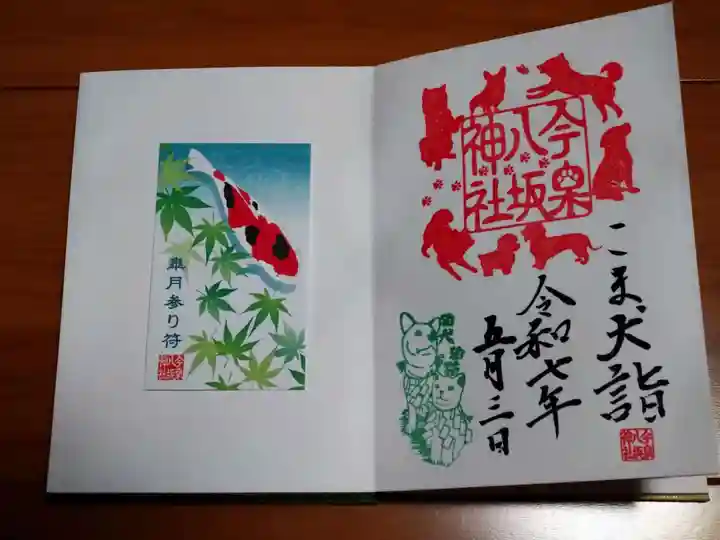 皐月参り符
今泉
八坂
神社
今泉
八坂
神社
こま犬詣
令和七年
五月三日
今泉
八坂
神社